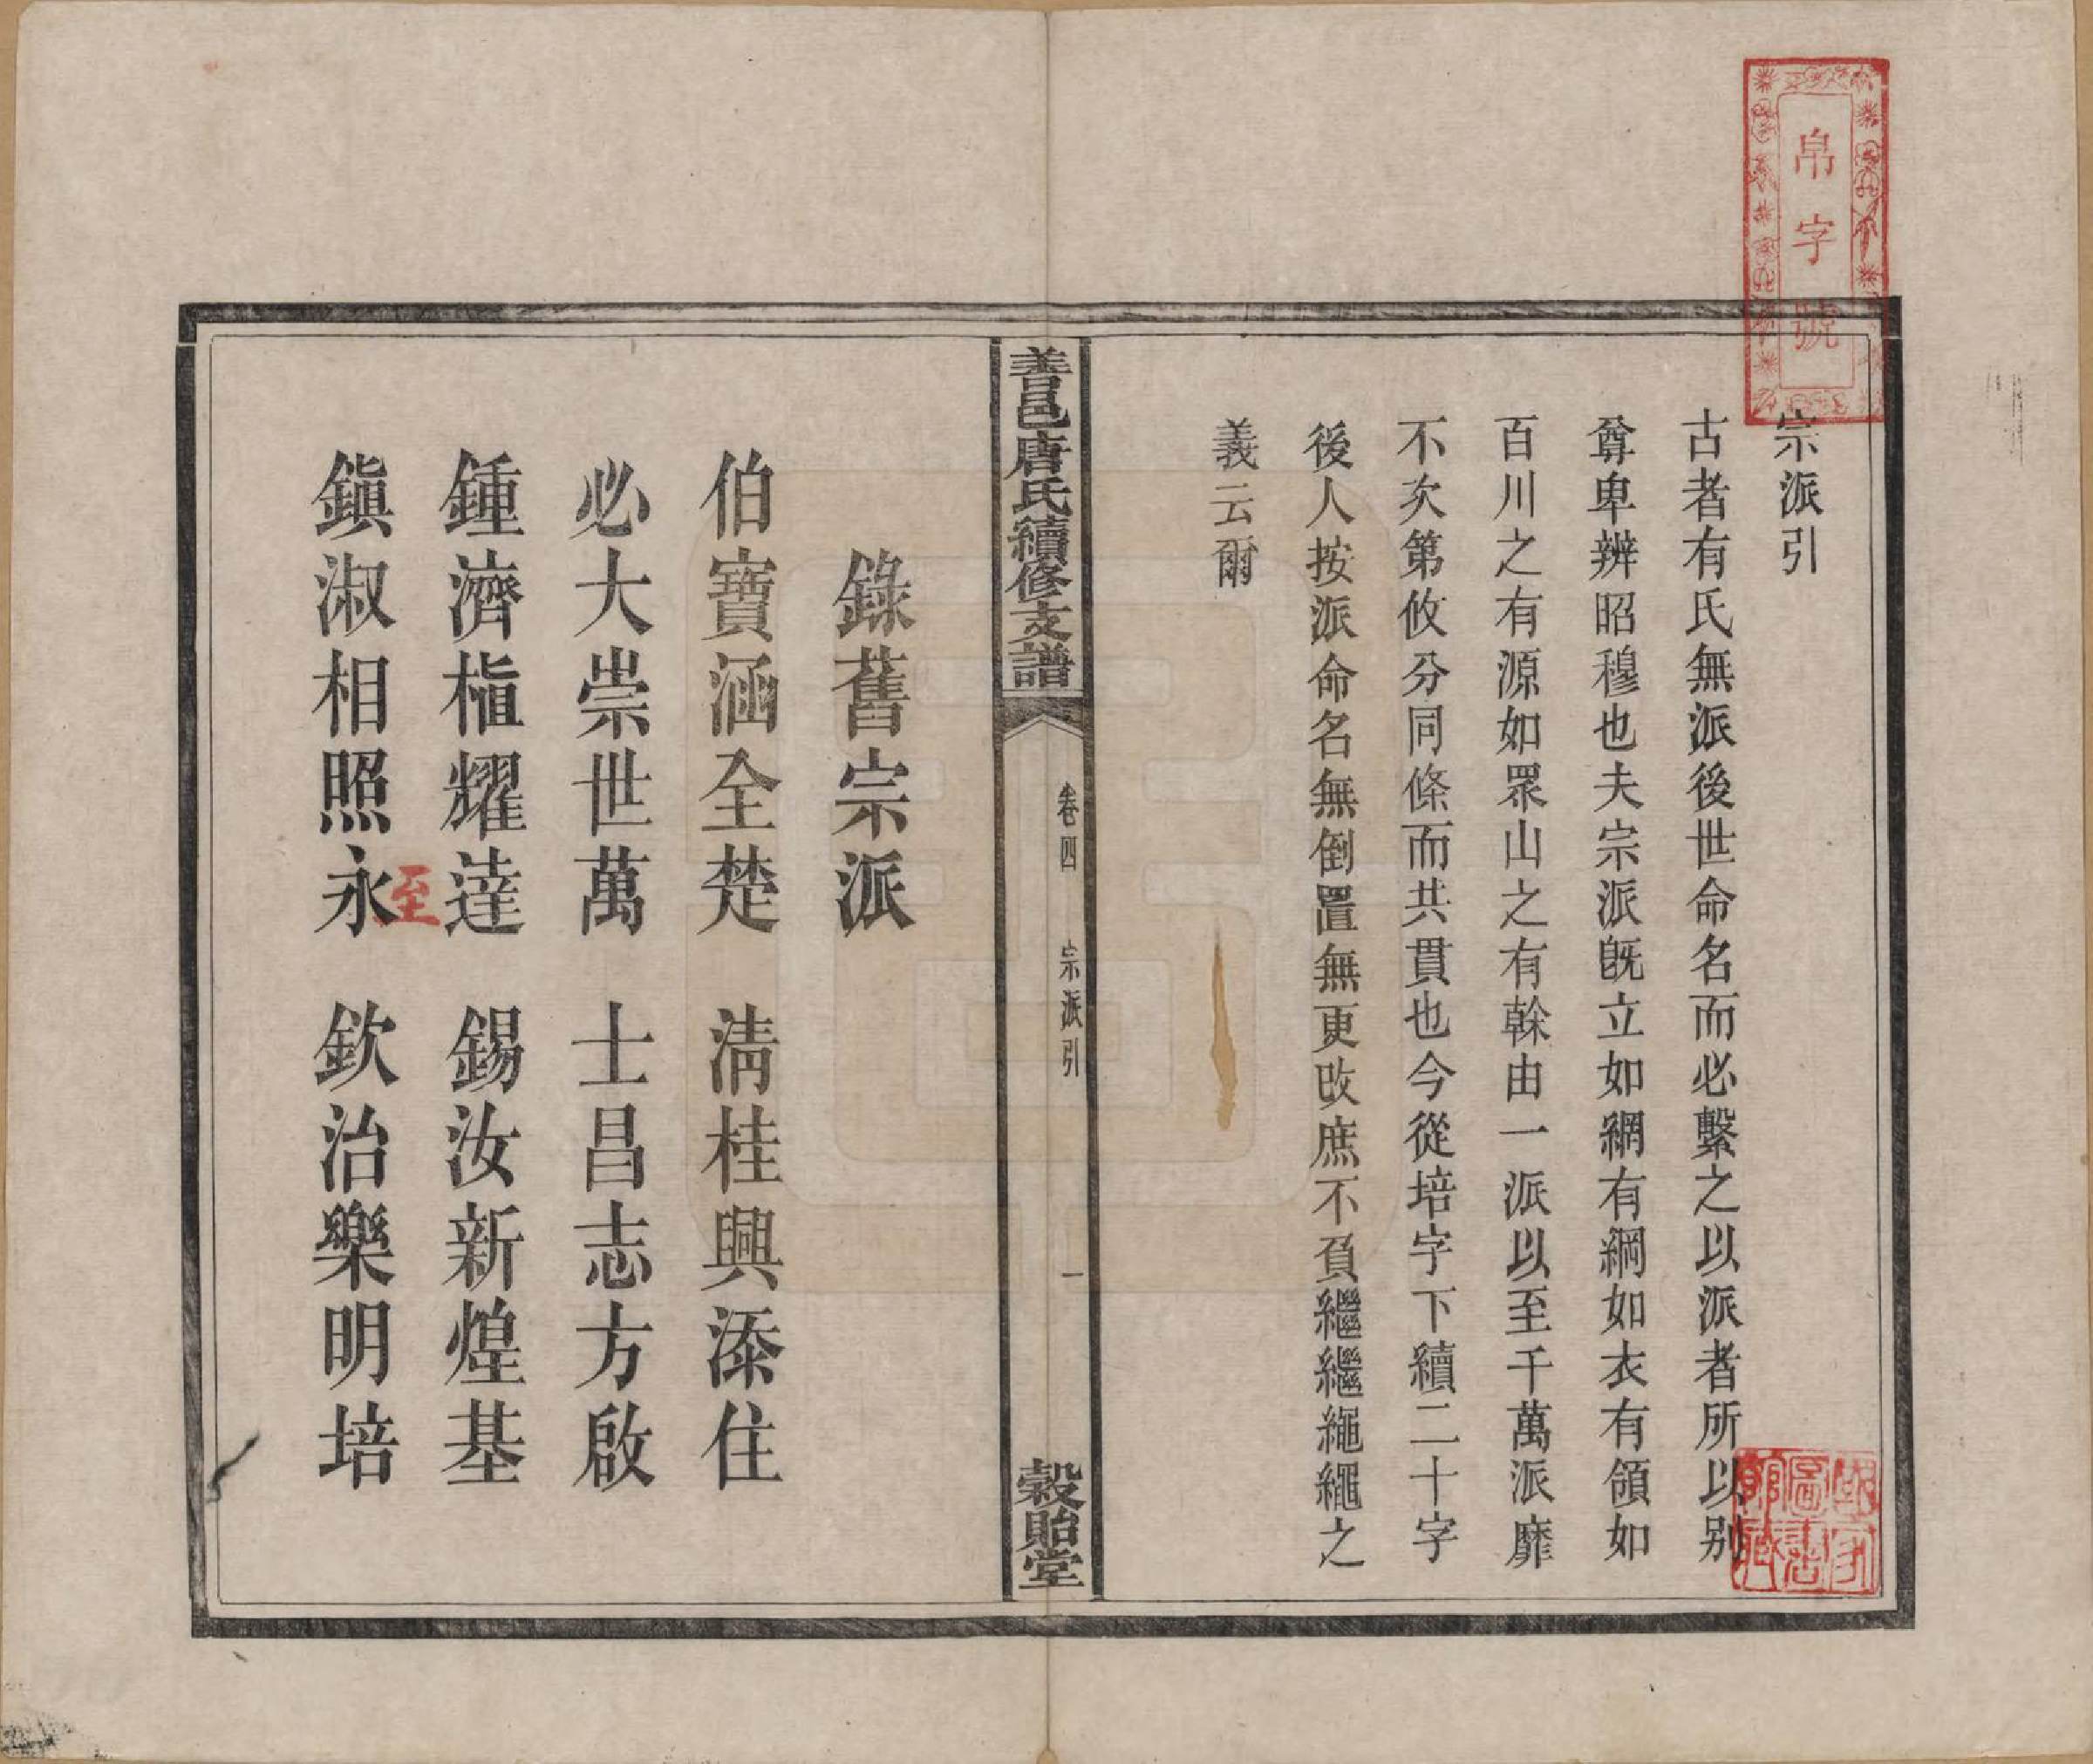 帛字號
宗派引
古者有氏無派後世命名而必繫之以派者所以别
尊卑辨昭穆也夫宗派旣立如網有綱如衣有領如
百川之有源如眾山之有榦由一派以至千萬派靡
不次第攸分同條而共貫也今從培字下續二十字
後人按派命名無倒置無更改庶不負繼繼繩繩之
義云爾
善邑唐氏續修支譜
卷四
宗派引
一
榖貽堂
錄舊宗派
伯寶涵全楚 淸桂興添住
必大崇世萬 士昌志方啟
鍾濟楦耀達 錫汝新煌基
至
鎭淑相照永 欽治樂明培